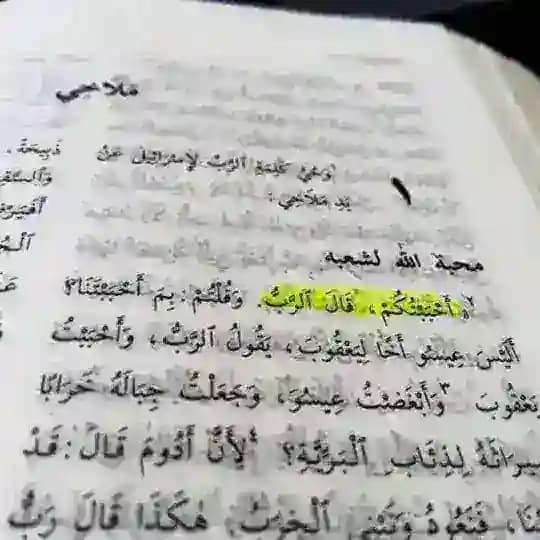 ملاخي
وَحْيُ كَلِمَةِ الرَّبِّ لِإِسْرَائِيلَ عَنْ
يَدِ مَلَاخِي:
١
محبة الله لشعبه
٢أَحْبَبْتُكُمْ، قَالَ ٱلرَّبُّ. وَقُلْتُمْ: بِمَ أَحْبَبْتَنَا؟
أَلَيْسَ عِيسُو أَخًا لِيَعْقُوبَ، يَقُولُ ٱلرَّبُّ، وَأَحْبَبْتُ
يَعْقُوبَ ٣وَأَبْغَضْتُ عِيسُوَ، وَجَعَلْتُ جِبَالَهُ خَرَابًا
مِيرَاثَهُ لِذِئَابِ ٱلْبَرِّيَّةِ؟ ٤لِأَنَّ أَدُومَ قَالَ: قَدْ
فَنَعُودُ وَنَبْنِي ٱلْخِرَبَ. هٰكَذَا قَالَ رَبُّ
ذَبِيحَةً.